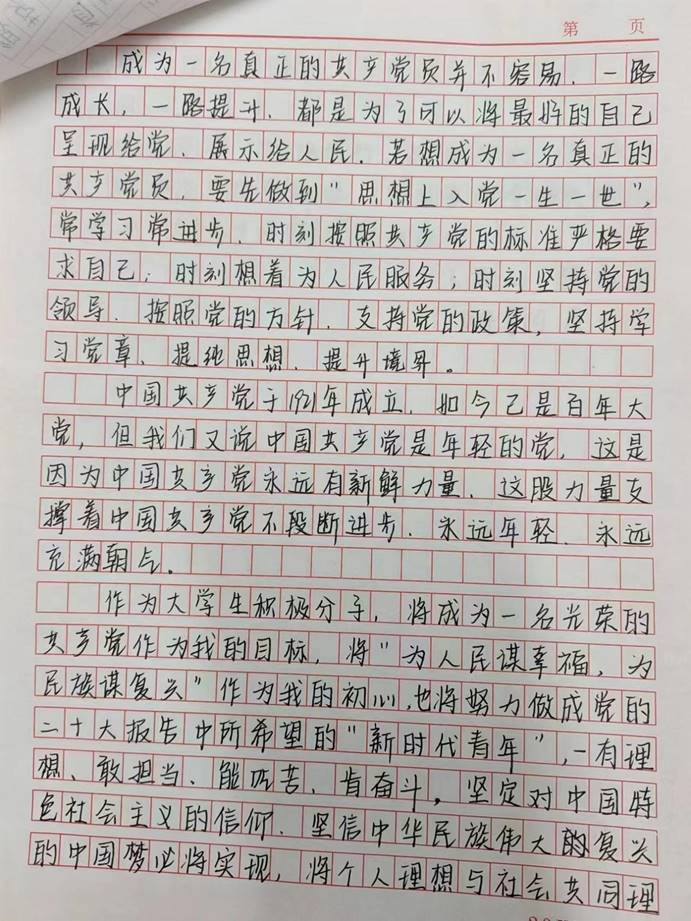 第 页
成为一名真正的共产党员并不容易，一路
成长，一路提升，都是为了可以将最好的自己
呈现给党、展示给人民。若想成为一名真正的
共产党员，要先做到“思想上入党一生一世”，
常学习常进步，时刻按照共产党的标准严格要
求自己；时刻想着为人民服务；时刻坚持党的
领导、按照党的方针、支持党的政策，坚持学
习党章、提纯思想、提升境界。
中国共产党于1921年成立，如今已是百年大
党，但我们又说中国共产党是年轻的党，这是
因为中国共产党永远有新鲜力量，这股力量支
撑着中国共产党不段断进步、永远年轻、永远
充满朝气。
作为大学生积极分子，将成为一名光荣的
共产党作为我的目标，将“为人民谋幸福，为
民族谋复兴”作为我的初心，也将努力做成党的
二十大报告中所希望的“新时代青年”，-有理
想、敢担当、能吃苦、肯奋斗，坚定对中国特
色社会主义的信仰、坚信中华民族伟大的复兴
的中国梦必将实现，将个人理想与社会共同理